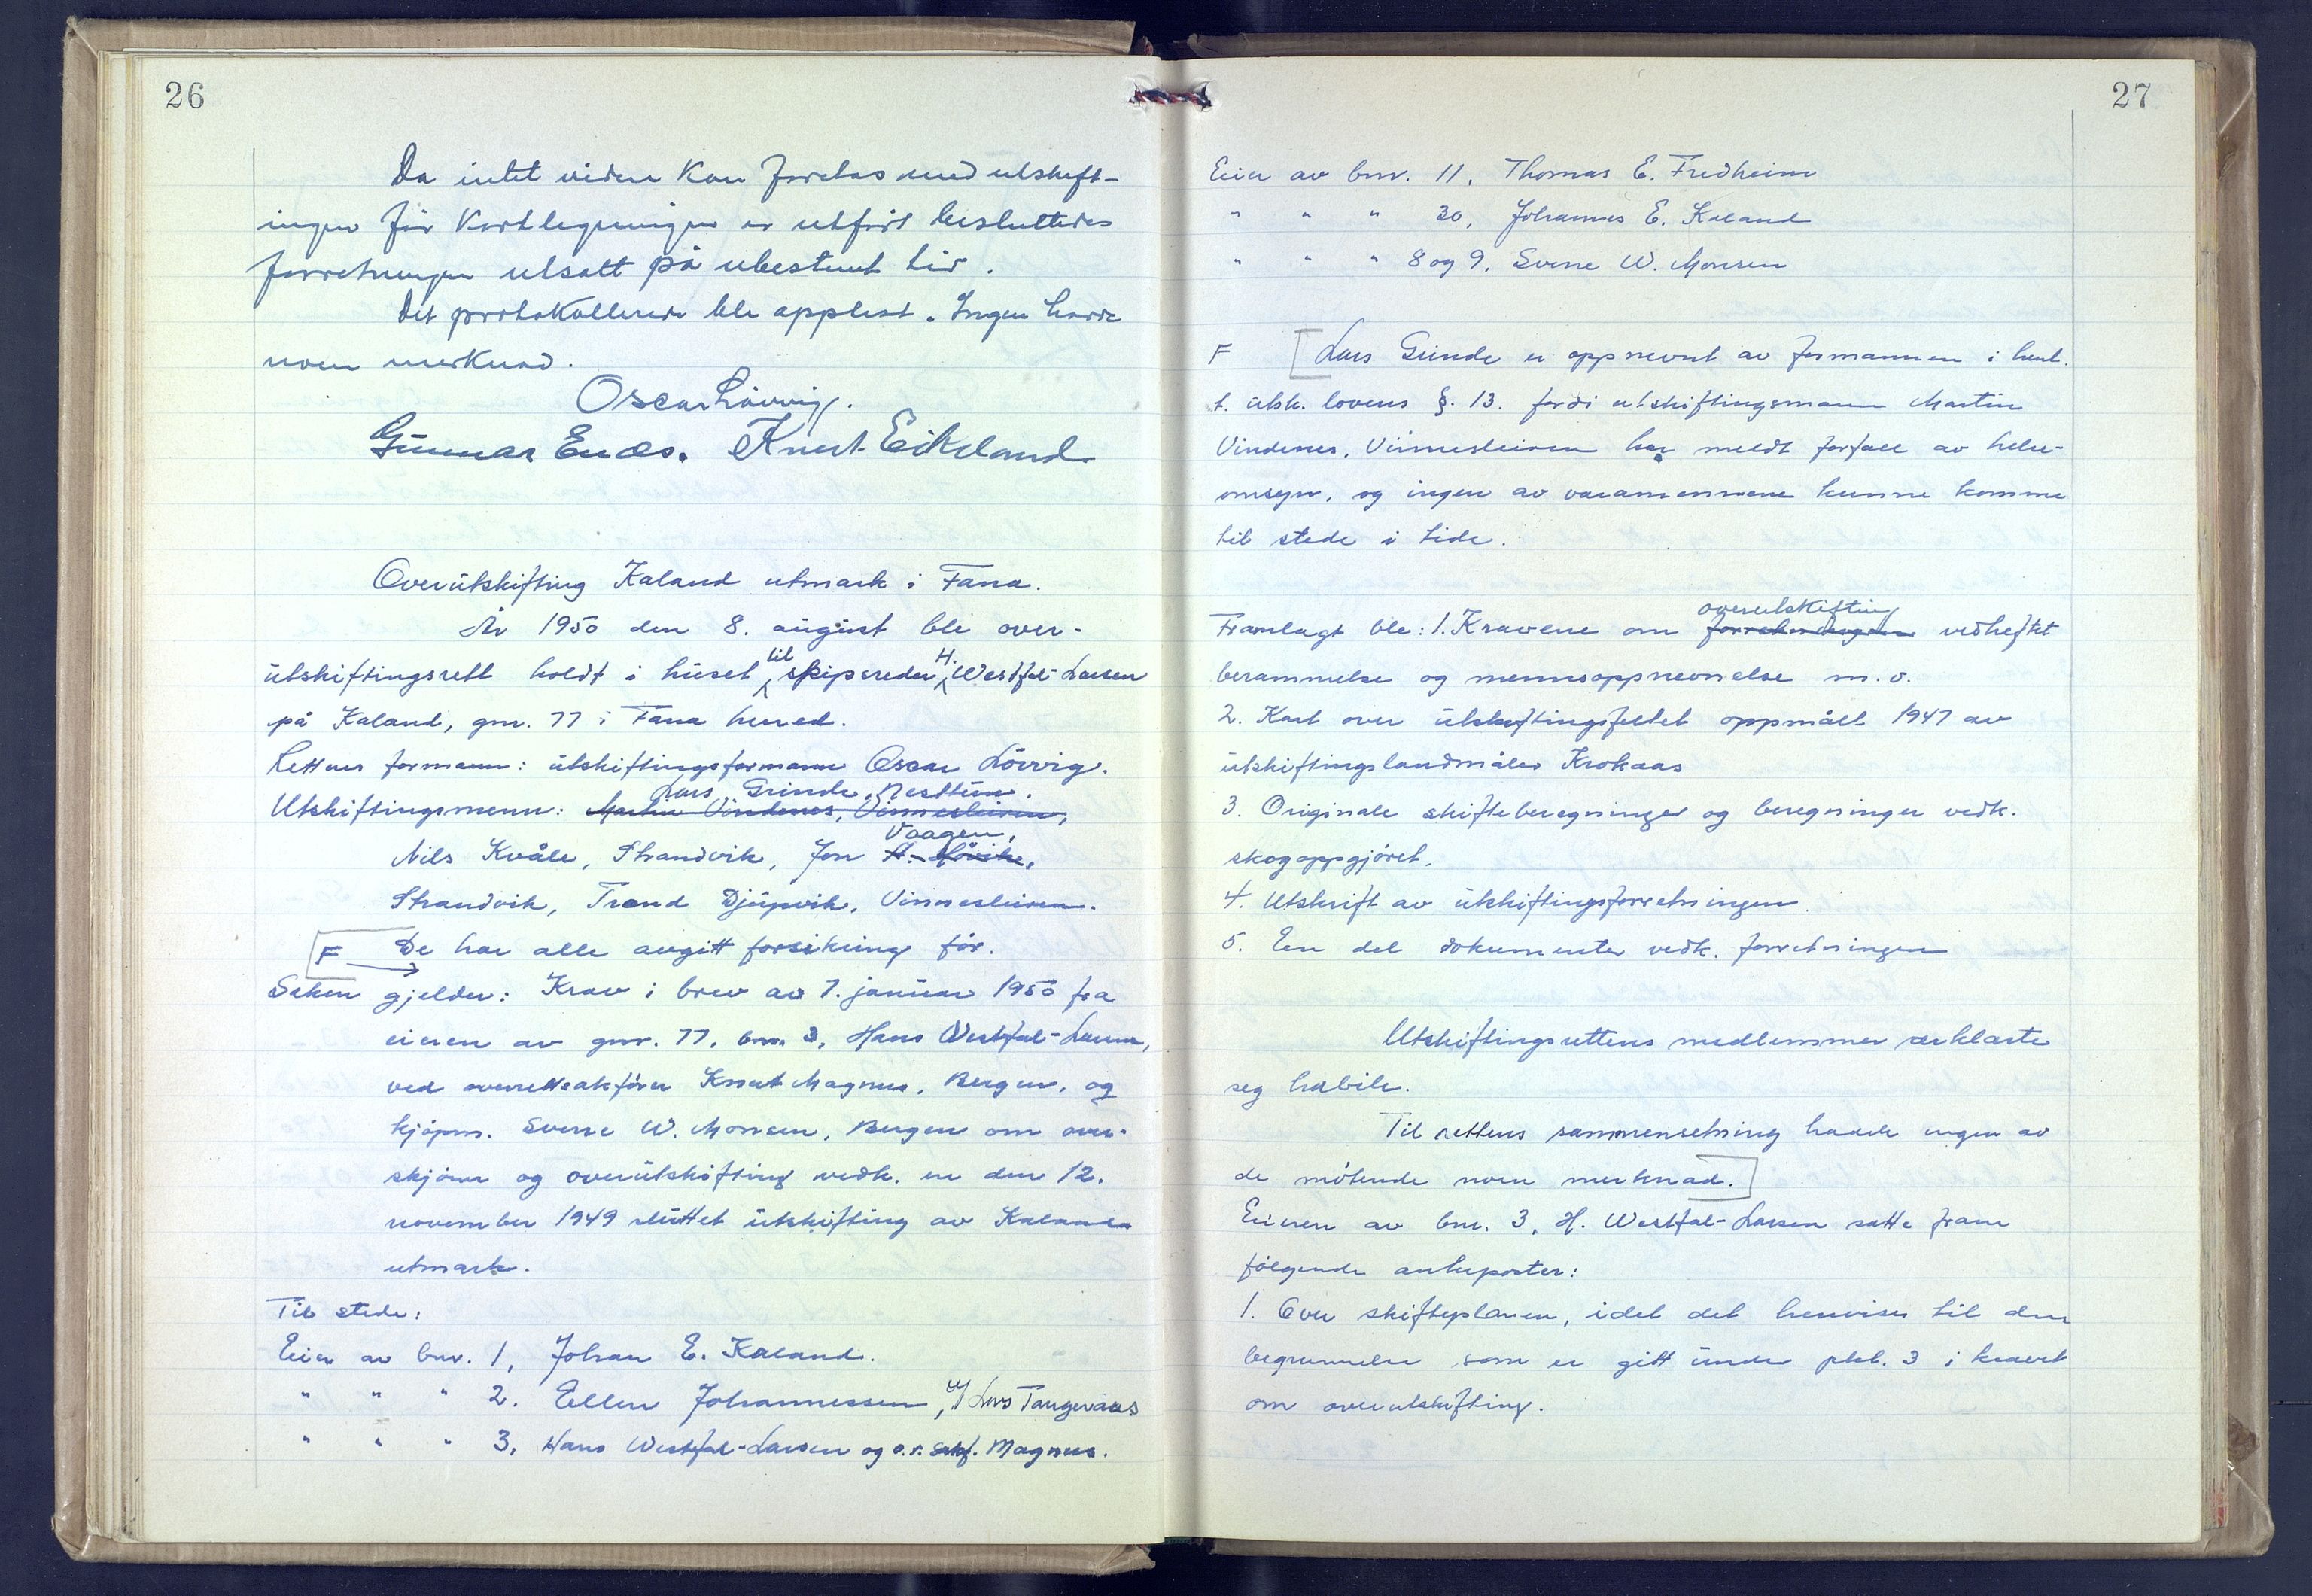 26
Da intet videre kan foretas med utskift-
ingen før kartlegningen er utført besluttedes
forretningen utsatt på ubestemt tid.
Det protokollerede ble opplest. Ingen hadde
noen merknad.
Oscar Lövvig.
Gunnar Enæs. Knut Eikeland
Overutskifting Kaland utmark i Fana.
År 1950 den 8. august ble over-
utskiftingsrett holdt i huset til skipsreder H. Westfal-Larsen
på Kaland, gnr. 77 i Fana herred.
Rettens formann: utskiftingsformann Oscar Lövvig.
Lars Grinde, Nesttun.
Utskiftingsmenn: Martin Vindenes, Vinnesleiren,
Vaagen,
Nils Kvåle, Strandvik, Jon
Strandvik, Trond Djupvik, Vinnesleiren.
F De har alle avgitt forsikring før.
Saken gjelder: Krav i brev av 7. januar 1950 fra
eieren av gnr. 77, bnr. 3, Hans Westfal-Larsen,
ved overrettssakfører Knut Magnus, Bergen, og
kjøpm. Sverre W. Monsen, Bergen om over-
skjønn og overutskifting vedk. en den 12.
november 1949 sluttet utskifting av Kalands
utmark.
Til stede:
Eier av bnr. 1, Johan E. Kaland.
" " " 2. Ellen Johannessen, v/ Lars Tangeraas
" " " 3, Hans Westfal-Larsen og o.r. sakf. Magnus.
27
Eier av bnr. 11, Thomas E. Fredheim
" " " 30, Johannes E. Kaland
" " " 8 og 9, Sverre W. Monsen
F Lars Grinde er oppnevnt av formannen i henh.
t. utsk. lovens §. 13. fordi utskiftingsmann Martin
Vindenes, Vinnesleiren har meldt forfall av helse-
omsyn, og ingen av varamennene kunne komme
til stede i tide.
overutskifting
Framlagt ble: 1. Kravene om forretningen vedheftet
berammelse og mennsoppnevnelse m.v.
2. Kart over utskiftingsfeltet oppmålt 1947 av
utskiftingslandmåler Krokaas
3. Originale skifteberegninger og beregninger vedk.
skogoppgjøret.
4. Utskrift av utskiftingsforretningen.
5. En del dokumenter vedk. forretningen
Utskiftingsrettens medlemmer erklærte
seg habile.
Til rettens sammensetning hadde ingen av
de møtende noen merknad.
Eieren av bnr. 3, H. Westfal-Larsen satte fram
følgende ankeposter:
1. Over skifteplanen, idet det henvises til den
begrunnelse som er gitt under pkt. 3 i kravet
om overutskifting.